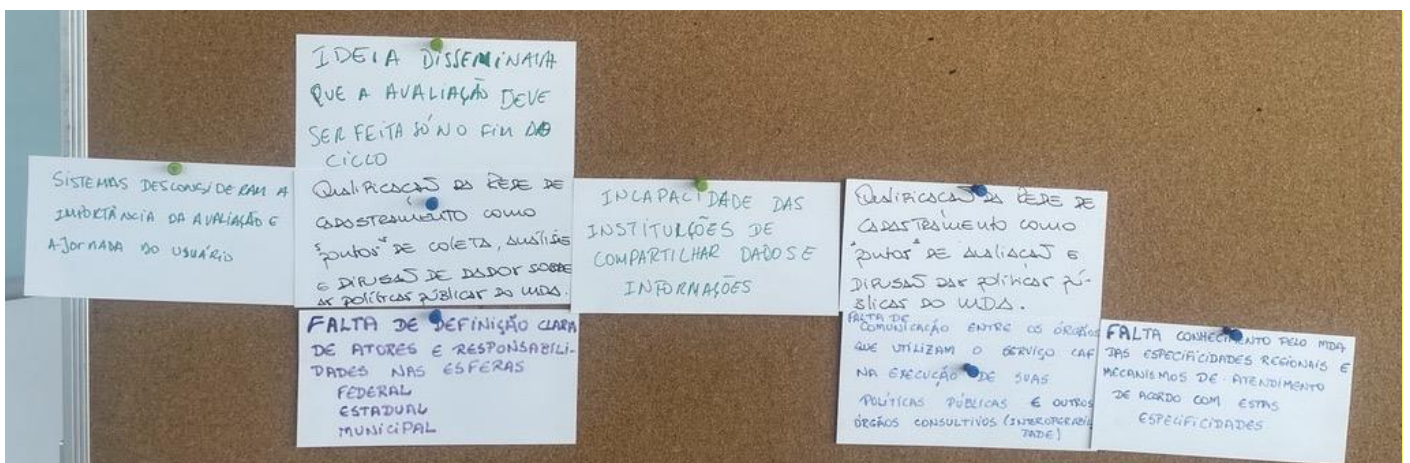 SISTEMAS DESCONSIDERAM A
IMPORTÂNCIA DA AVALIAÇÃO E
A JORNADA DO USUÁRIO
IDEIA DISSEMINADA
QUE A AVALIAÇÃO DEVE
SER FEITA SÓ NO FIM DO
CICLO
Qualificação da REDE DE
CADASTRAMENTO como
"pontos" DE COLETA, ANÁLISE
E DIFUSÃO DE DADOS SOBRE
as políticas públicas do MDA.
FALTA DE DEFINIÇÃO CLARA
DE ATORES E RESPONSABILI-
DADES NAS ESFERAS
FEDERAL
ESTADUAL
MUNICIPAL
INCAPACIDADE DAS
INSTITUIÇÕES DE
COMPARTILHAR DADOS E
INFORMAÇÕES
Qualificação da REDE DE
CADASTRAMENTO como
"pontos" DE AVALIAÇÃO E
DIFUSÃO das políticas pú-
blicas do MDA.
FALTA DE
COMUNICAÇÃO ENTRE OS ÓRGÃOS
QUE UTILIZAM O SERVIÇO CAF
NA EXECUÇÃO DE SUAS
POLÍTICAS PÚBLICAS E OUTROS
ÓRGÃOS CONSULTIVOS (INTEROPERABILI
DADE)
FALTA CONHECIMENTO PELO MDA
DAS ESPECIFICIDADES REGIONAIS E
MECANISMOS DE ATENDIMENTO
DE ACORDO COM ESTAS
ESPECIFICIDADES